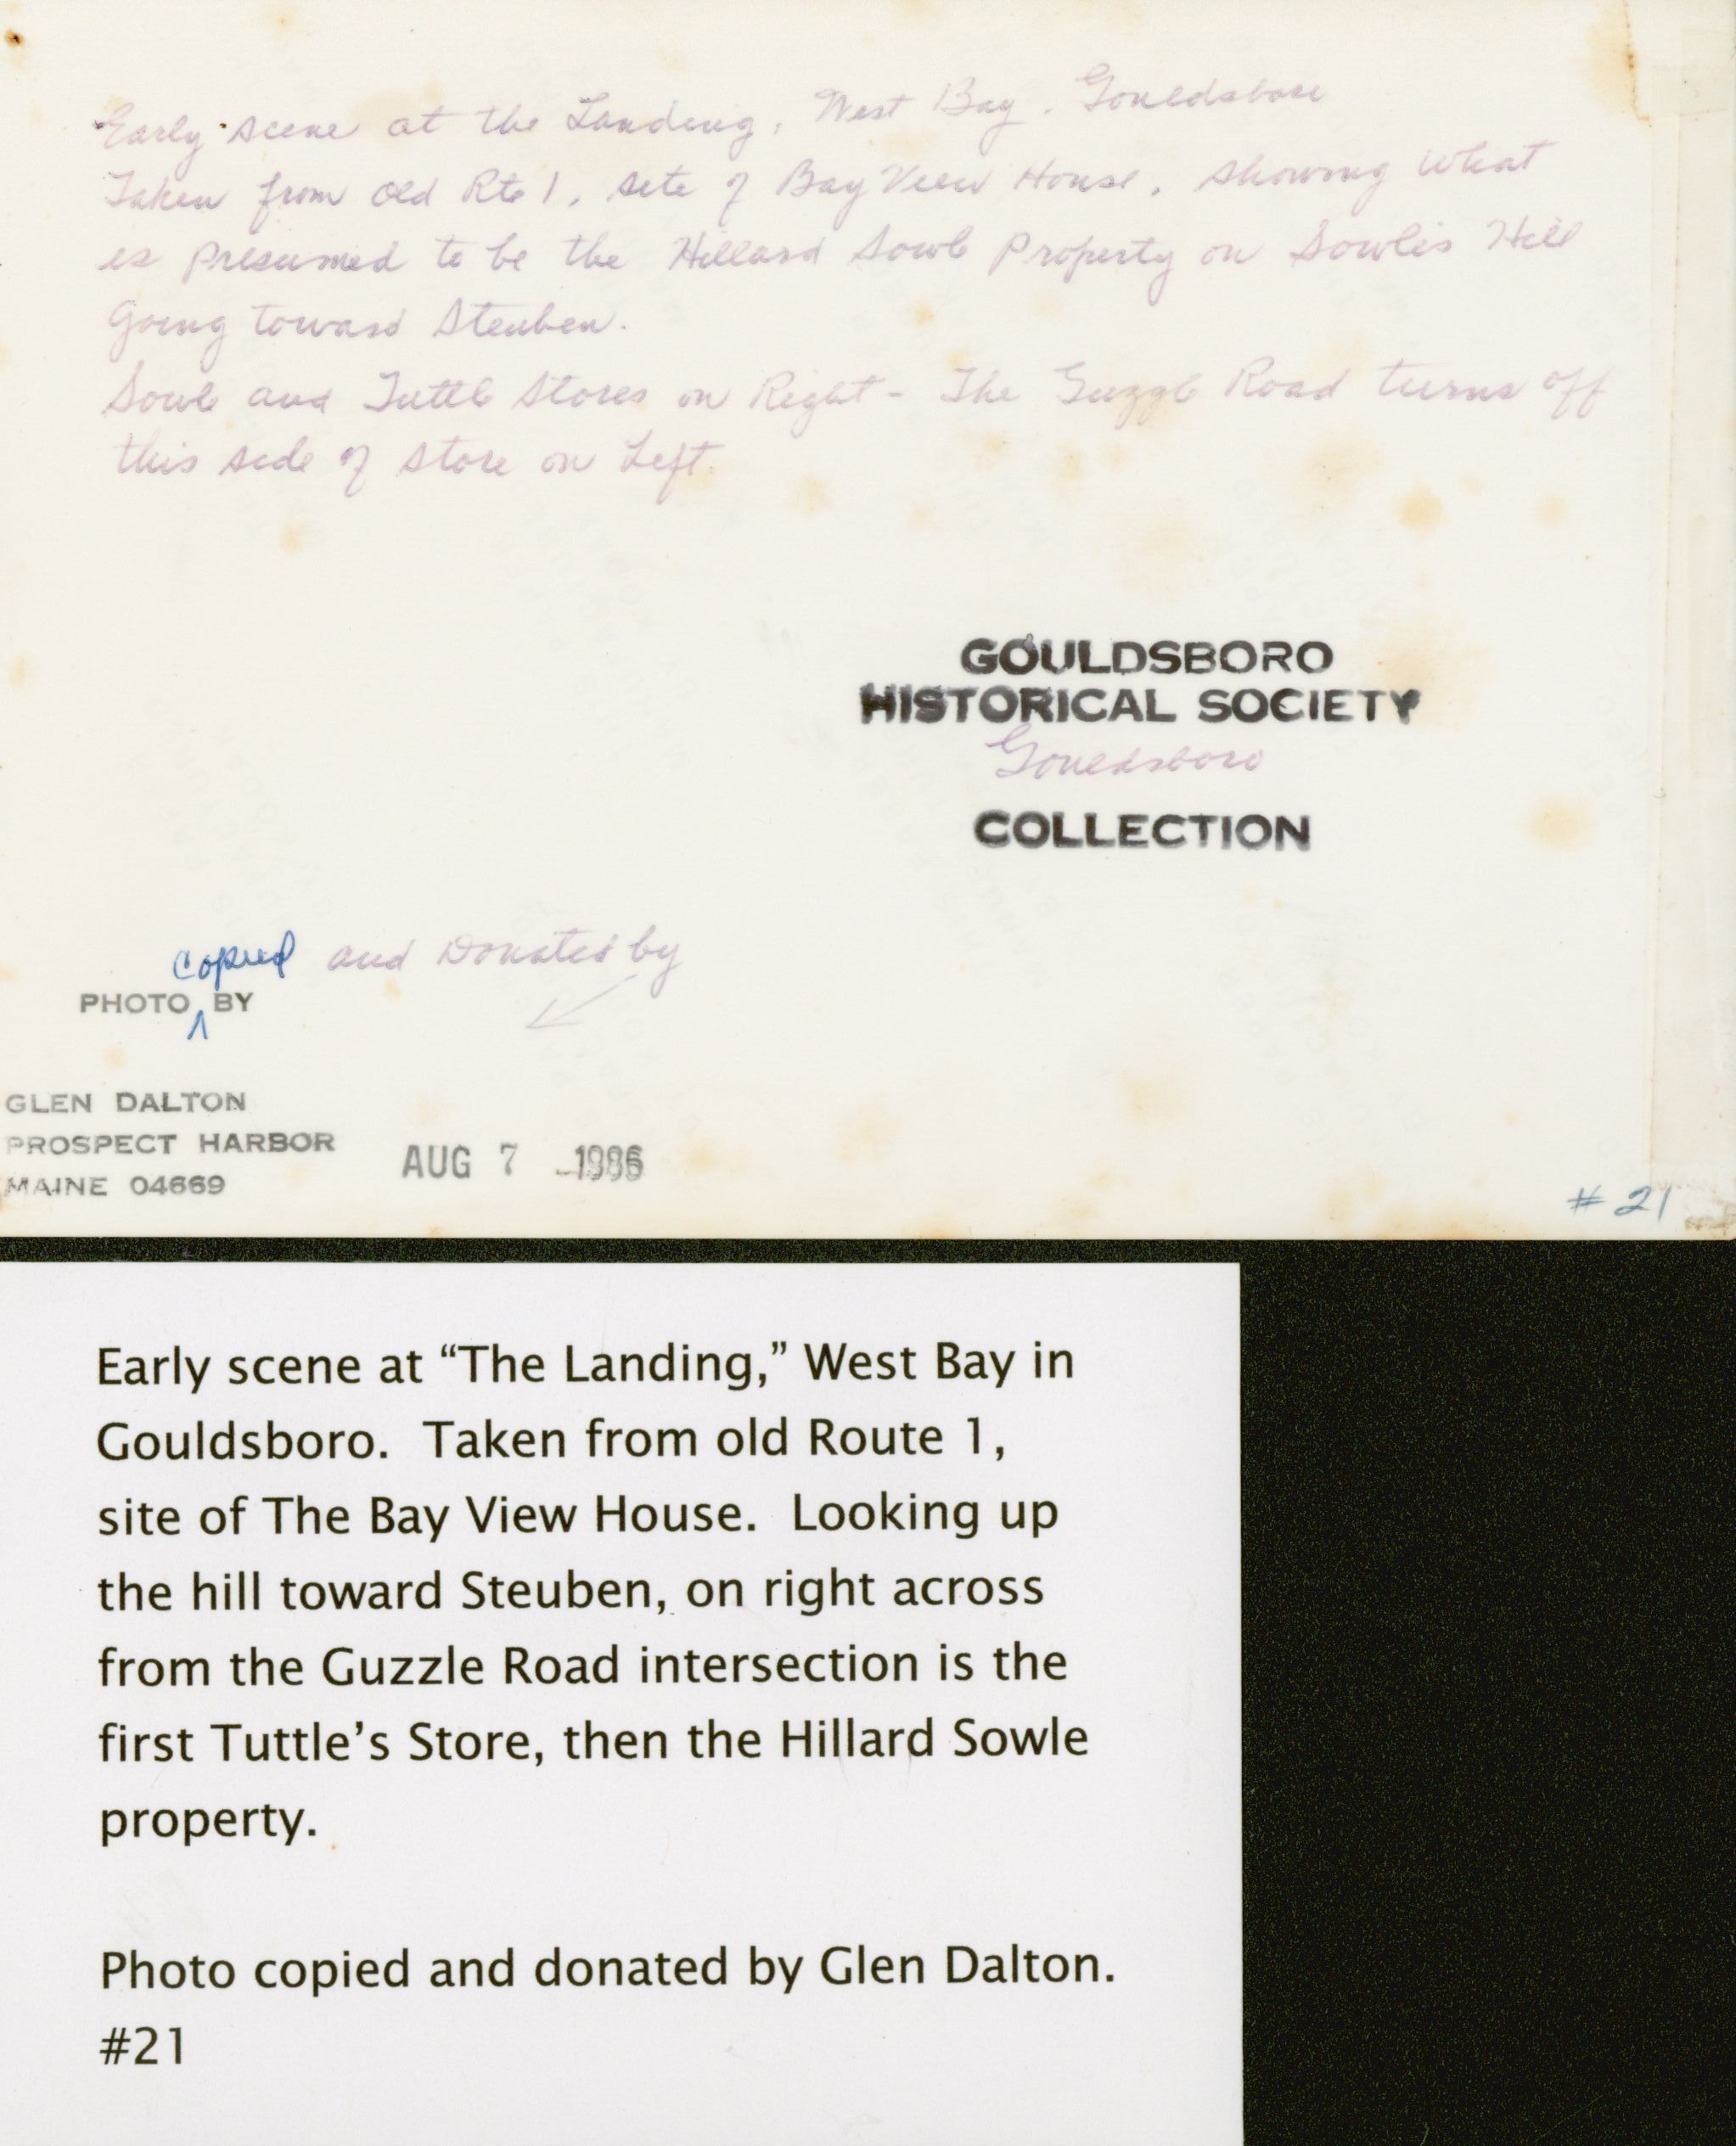 Early scene at the Landing, West Bay. Gouldsboro
Taken from old Rte 1, site of Bay View House, showing what
is presumed to be the Hillard Sowle Property on Sowle's Hill
Going toward Steuben.
Sowle and Tuttle Stores on Right - The Guzzle Road turns off
this side of store on Left.
GOULDSBORO
HISTORICAL SOCIETY
Gouldsboro
COLLECTION
copied and Donated by
PHOTO ^ BY
GLEN DALTON
PROSPECT HARBOR
MAINE 04669
AUG 7 1986
# 21
Early scene at “The Landing,” West Bay in
Gouldsboro. Taken from old Route 1,
site of The Bay View House. Looking up
the hill toward Steuben, on right across
from the Guzzle Road intersection is the
first Tuttle’s Store, then the Hillard Sowle
property.
Photo copied and donated by Glen Dalton.
#21